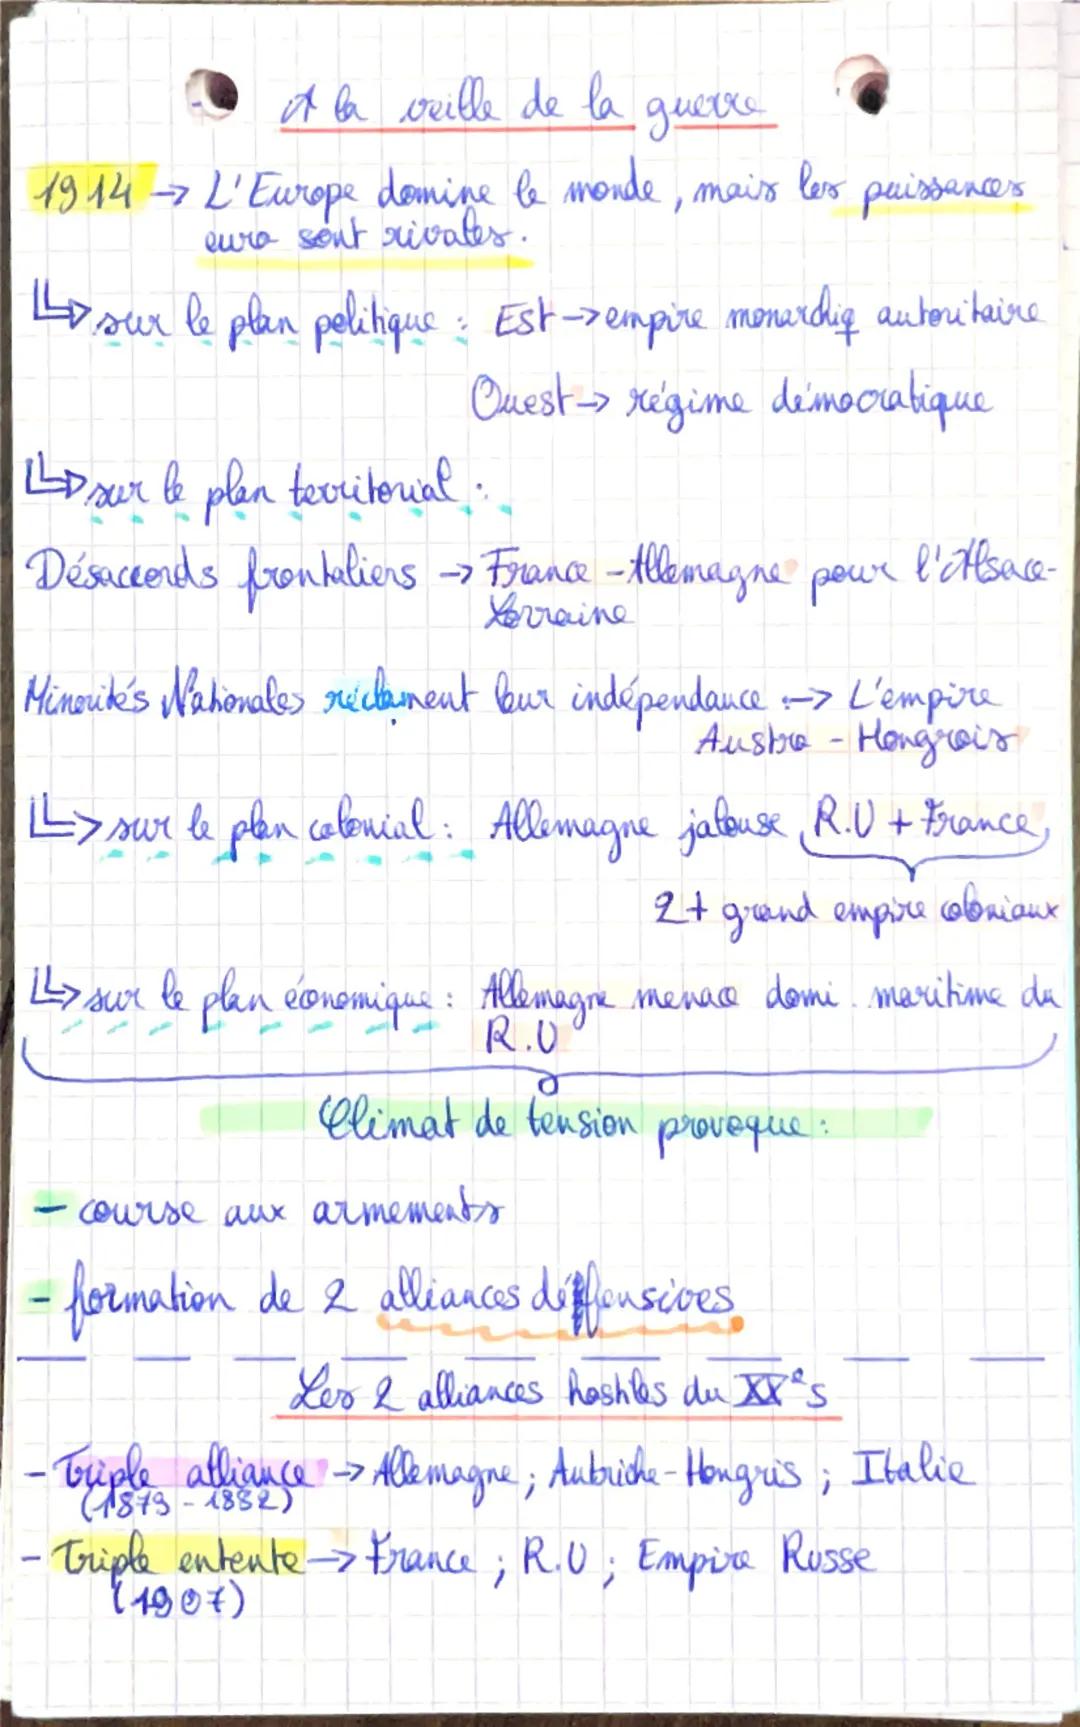 A la veille de la guerre
1914 → L'Europe domine le monde, mais les puissances
euro sont rivales.
↳ sur le plan politique : Est → empire monarchiq autoritaire
Ouest → régime démocratique
↳ sur le plan territorial :
Désaccords frontaliers → France - Allemagne pour l'Alsace-
Lorraine
Minorités Nationales réclament leur indépendance : → L'empire
Austro - Hongrois
↳ sur le plan colonial : Allemagne jalouse R.U + France,
2 + grand empire coloniaux
↳ sur le plan économique : Allemagne menace domi. maritime du
R.U
Climat de tension provoque :
- course aux armements
- formation de 2 alliances déffensives
Les 2 alliances hostiles du XXe s
- Triple alliance → Allemagne ; Autriche - Hongris ; Italie
(1879 - 1882)
- Triple entente → France ; R.U ; Empire Russe
(1907)